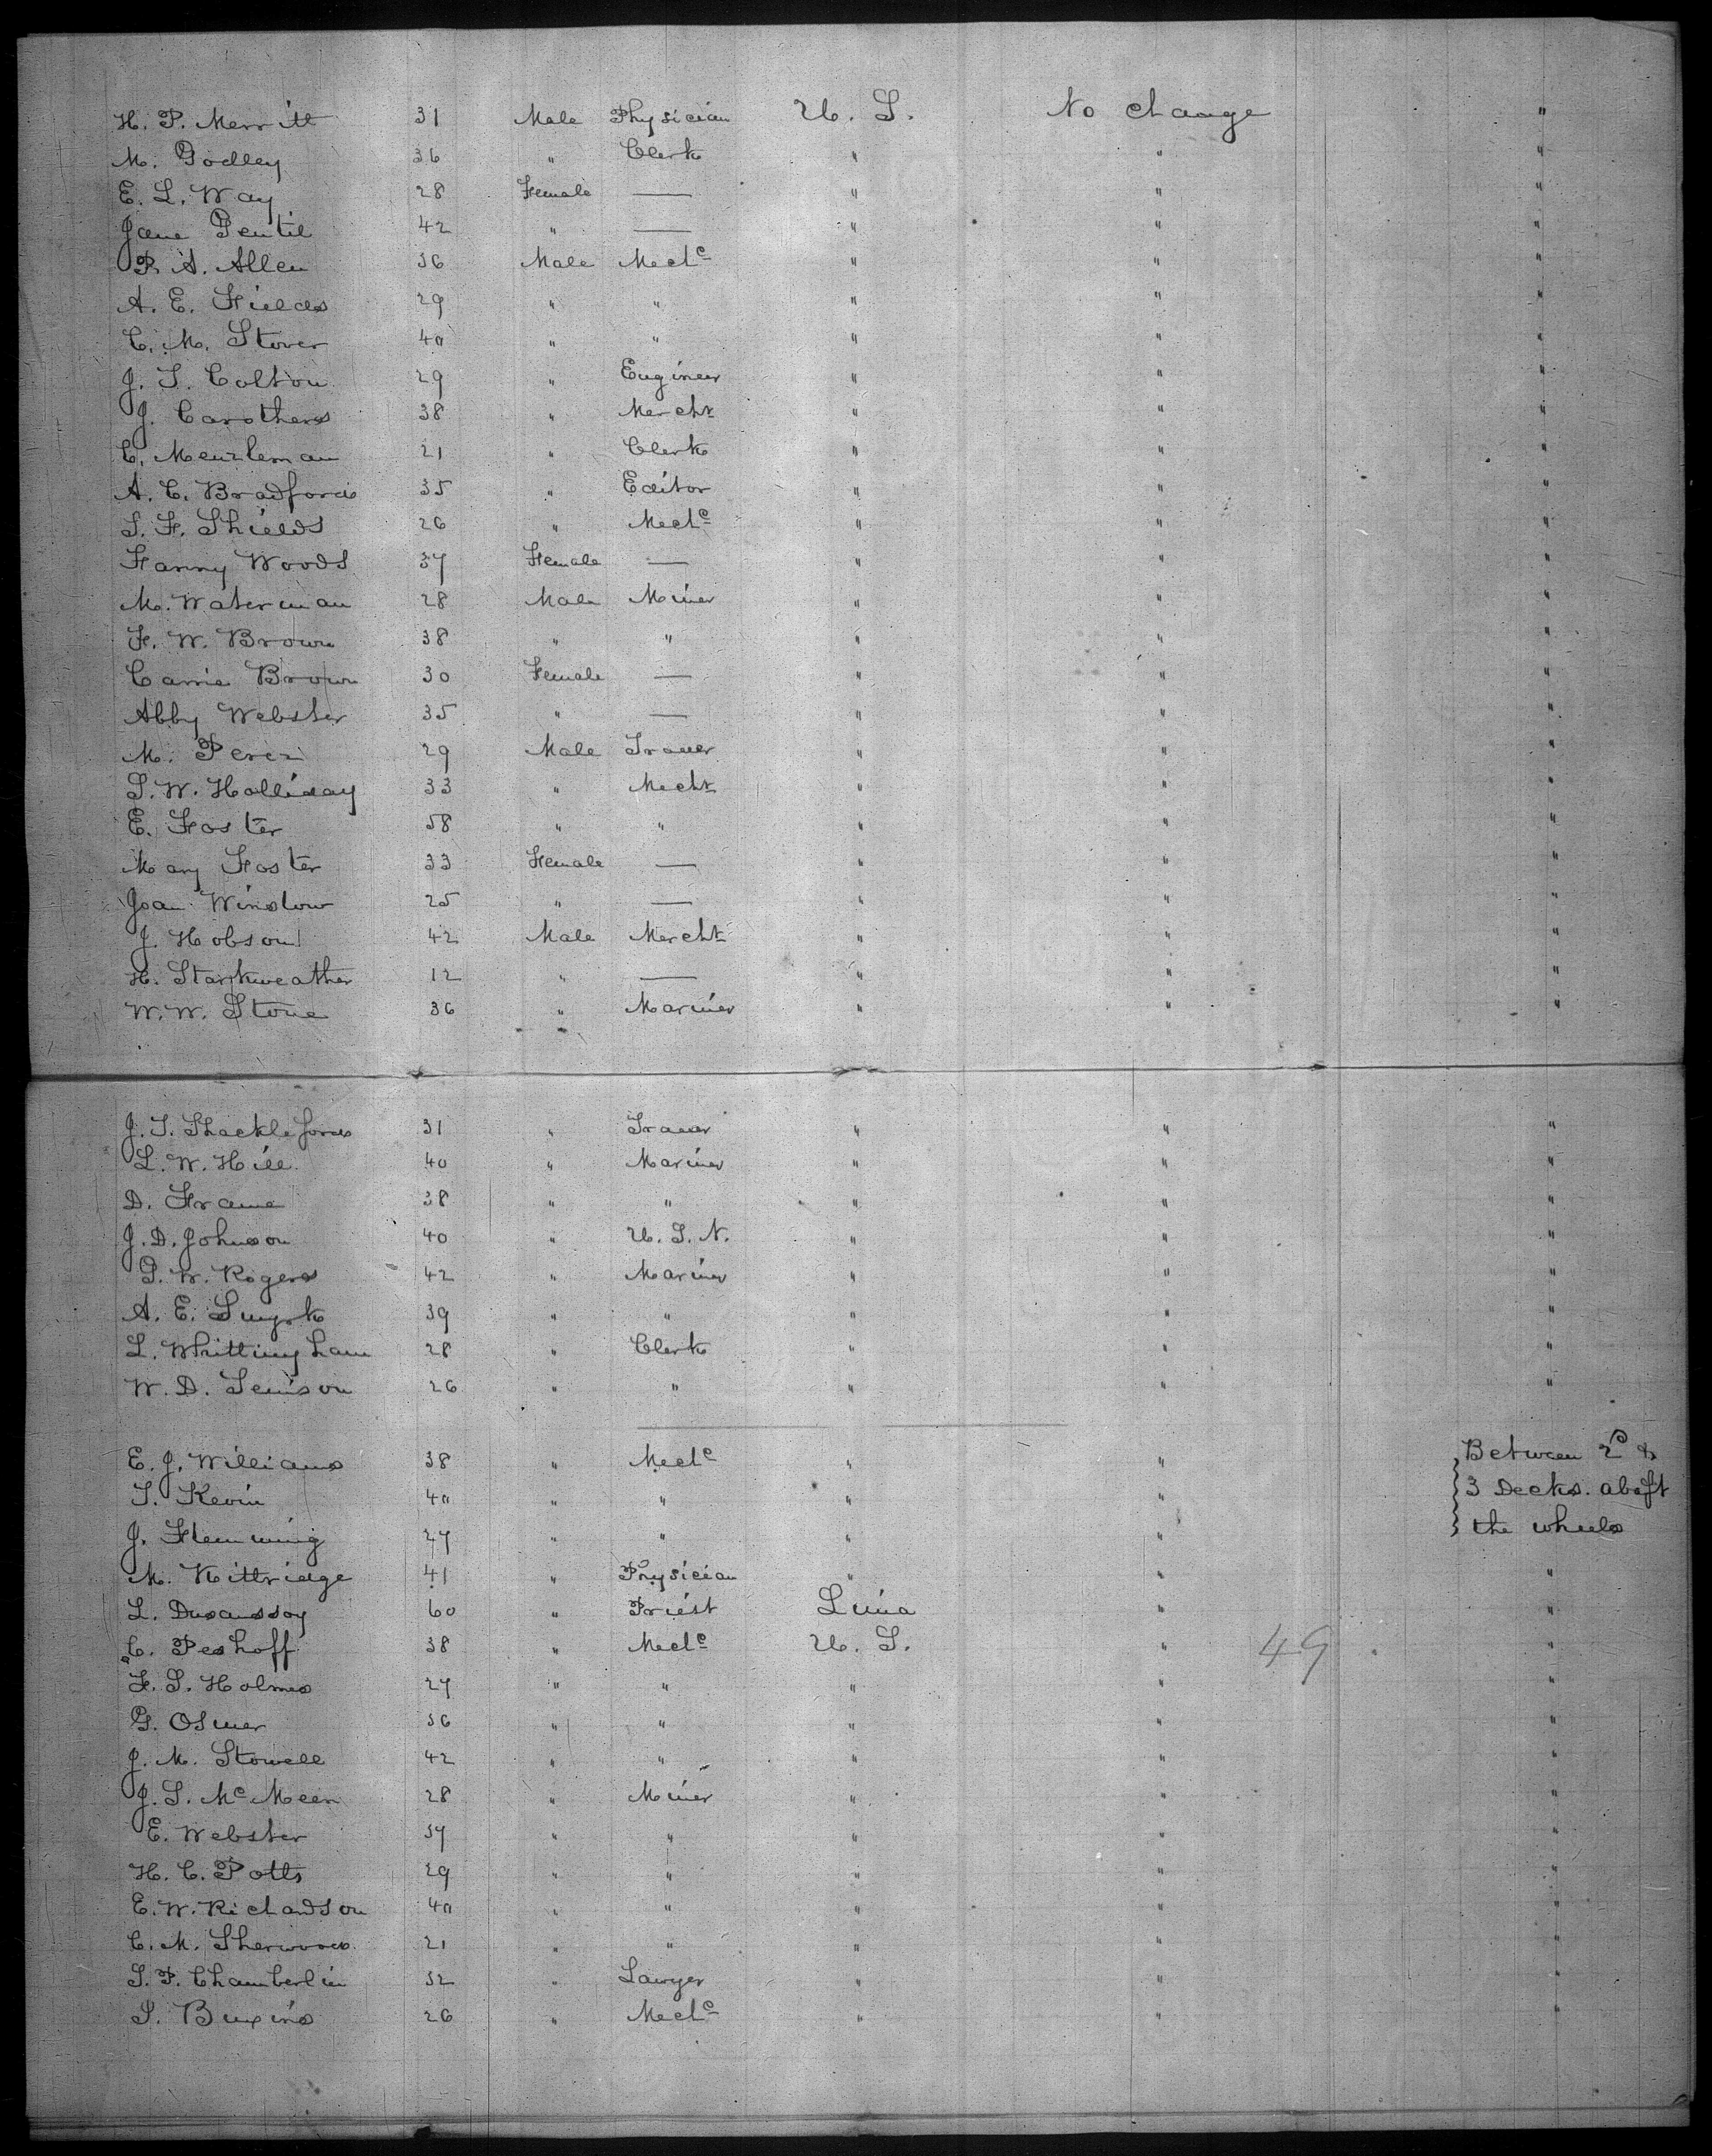 H. P. Merritt 31 Male Physician U. S. No change "
M. Godley 36 " Clerk " " "
E. L. Way 28 Female — " " "
Jane Gentil 42 " — " " "
P. A. Allen 36 Male Mech<sup>c</sup> " " "
A. E. Fields 29 " " " " "
C. M. Stover 40 " " " " "
J. S. Colton 29 " Engineer " " "
J. Carothers 38 " Mercht " " "
C. 21 " Clerk " " "
A. C. Bradford 35 " Editor " " "
S. F. Shields 26 " Mech<sup>c</sup> " " "
Fanny Woods 37 Female — " " "
M. Waterman 28 Male Miner " " "
F. W. Brown 38 " " " " "
Carrie Brown 30 Female — " " "
Abby Webster 35 " — " " "
M. Perez 29 Male Trader " " "
S. W. Holliday 33 " Mecht " " "
E. Foster 58 " " " " "
Mary Foster 33 Female — " " "
Joan Winslow 25 " — " " "
J. Hobson 42 Male Mercht " " "
H. Starkweather 12 " — " " "
W. W. Stone 36 " Mariner " " "
J. T. Shackleford 31 " Trader " " "
L. W. Hill 40 " Mariner " " "
D. Frame 38 " " " " "
J. D. Johnson 40 " U. S. N. " " "
S. W. Rogers 42 " Mariner " " "
A. E. 39 " " " " "
L. Whittingham 28 " Clerk " " "
W. D. Tenison 26 " " " " "
E. J. Williams 38 " Mech<sup>c</sup> " " Between 2<sup>d</sup> &
T. Kevin 40 " " " " 3 Decks. abaft
J. Flemming 27 " " " " the wheels
M. Kittridge 41 " Physician " " "
L. 60 " Priest Lima " "
C. Peshoff 38 " Mech<sup>c</sup> U. S. " 49 "
F. S. Holmes 27 " " " " "
G. Osmer 36 " " " " "
J. M. Stowell 42 " " " " "
J. S. McMeen 28 " Miner " " "
E. Webster 37 " " " " "
H. C. Potts 29 " " " " "
E. W. Richardson 40 " " " " "
C. M. Sherwood 21 " " " " "
S. P. Chamberlin 32 " Lawyer " " "
S. 26 " Mech<sup>c</sup> " " "